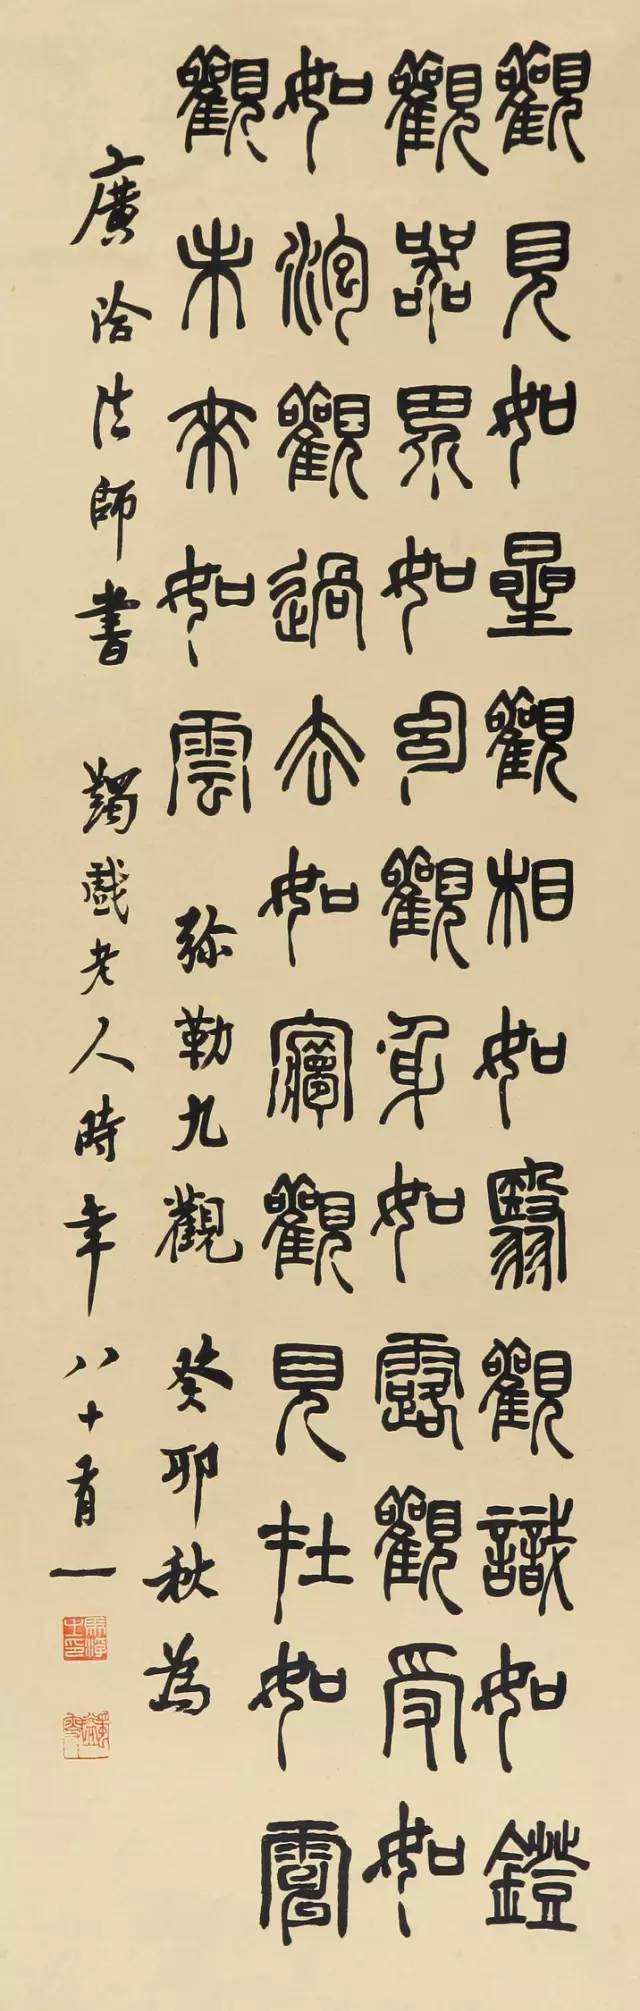 觀見如星觀相如翳觀識如鐙
觀器界如幻觀身如露觀受如
如泡觀過去如㝱觀見在如電
觀未來如雲 弥勒九觀 癸卯秋為
廣洽法師書 蠲戲老人時年八十有一